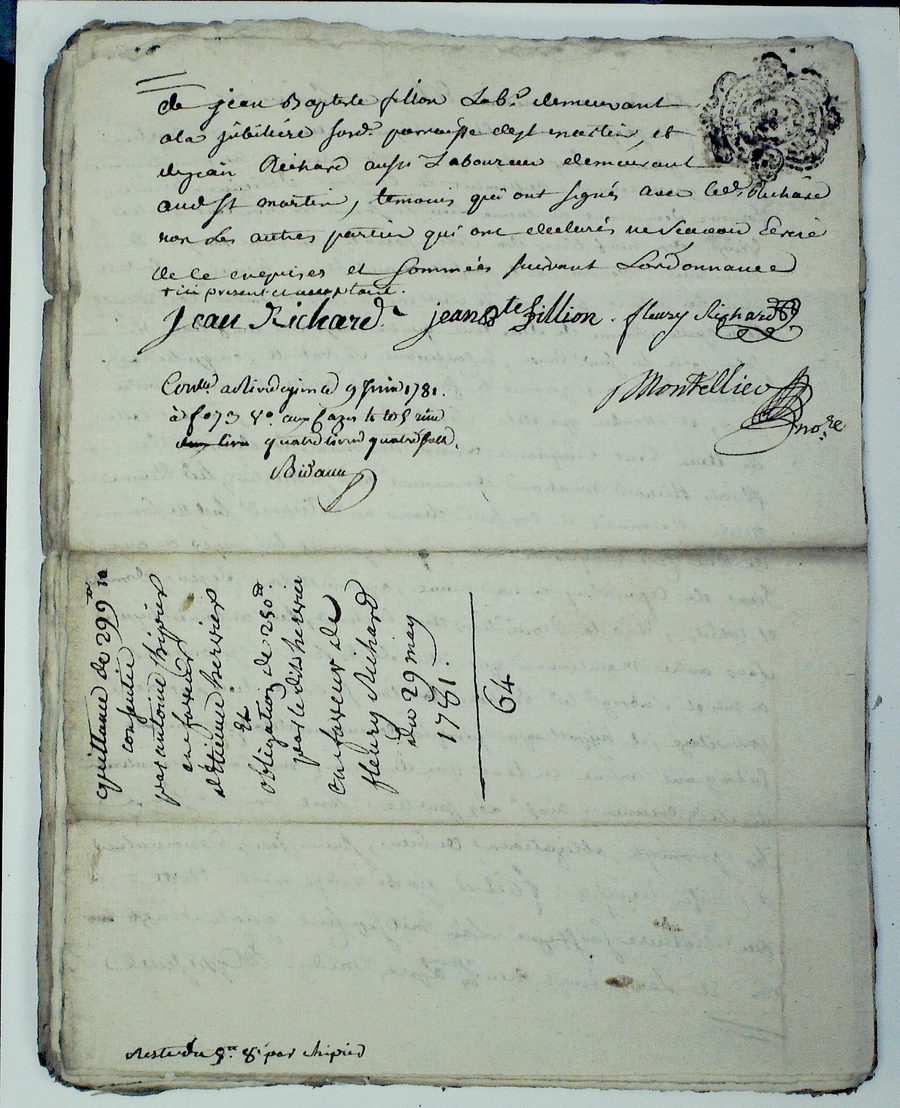 de jean Baptiste fillion Lab.r demeurant
ala jubilière surd. parroisse de st martin, et
de jean Richard aussi Laboureur demeurant
aud. st martin, temoins qui ont signés avec led. Richard
non les autres parties qui ont declarés ne scavoir Ecrire
de ce enquises et sommées suivant Lordonnance
+ ici present et acceptant.
Jean Richard jean Bte fillion fleury Richard
Montellier
no.re
Con.lle a Rivedegier ce 9 Juin 1781.
à f.o 73 V.o aux Cazes
quatre livres quatre sols.
quittance de 299
consentie
par antoine
en faveur
d'Etienne hervier
Et
obligation de 250
par le dit hervier
en faveur de
fleury Richard
du 29 may
1781.
64
Reste du